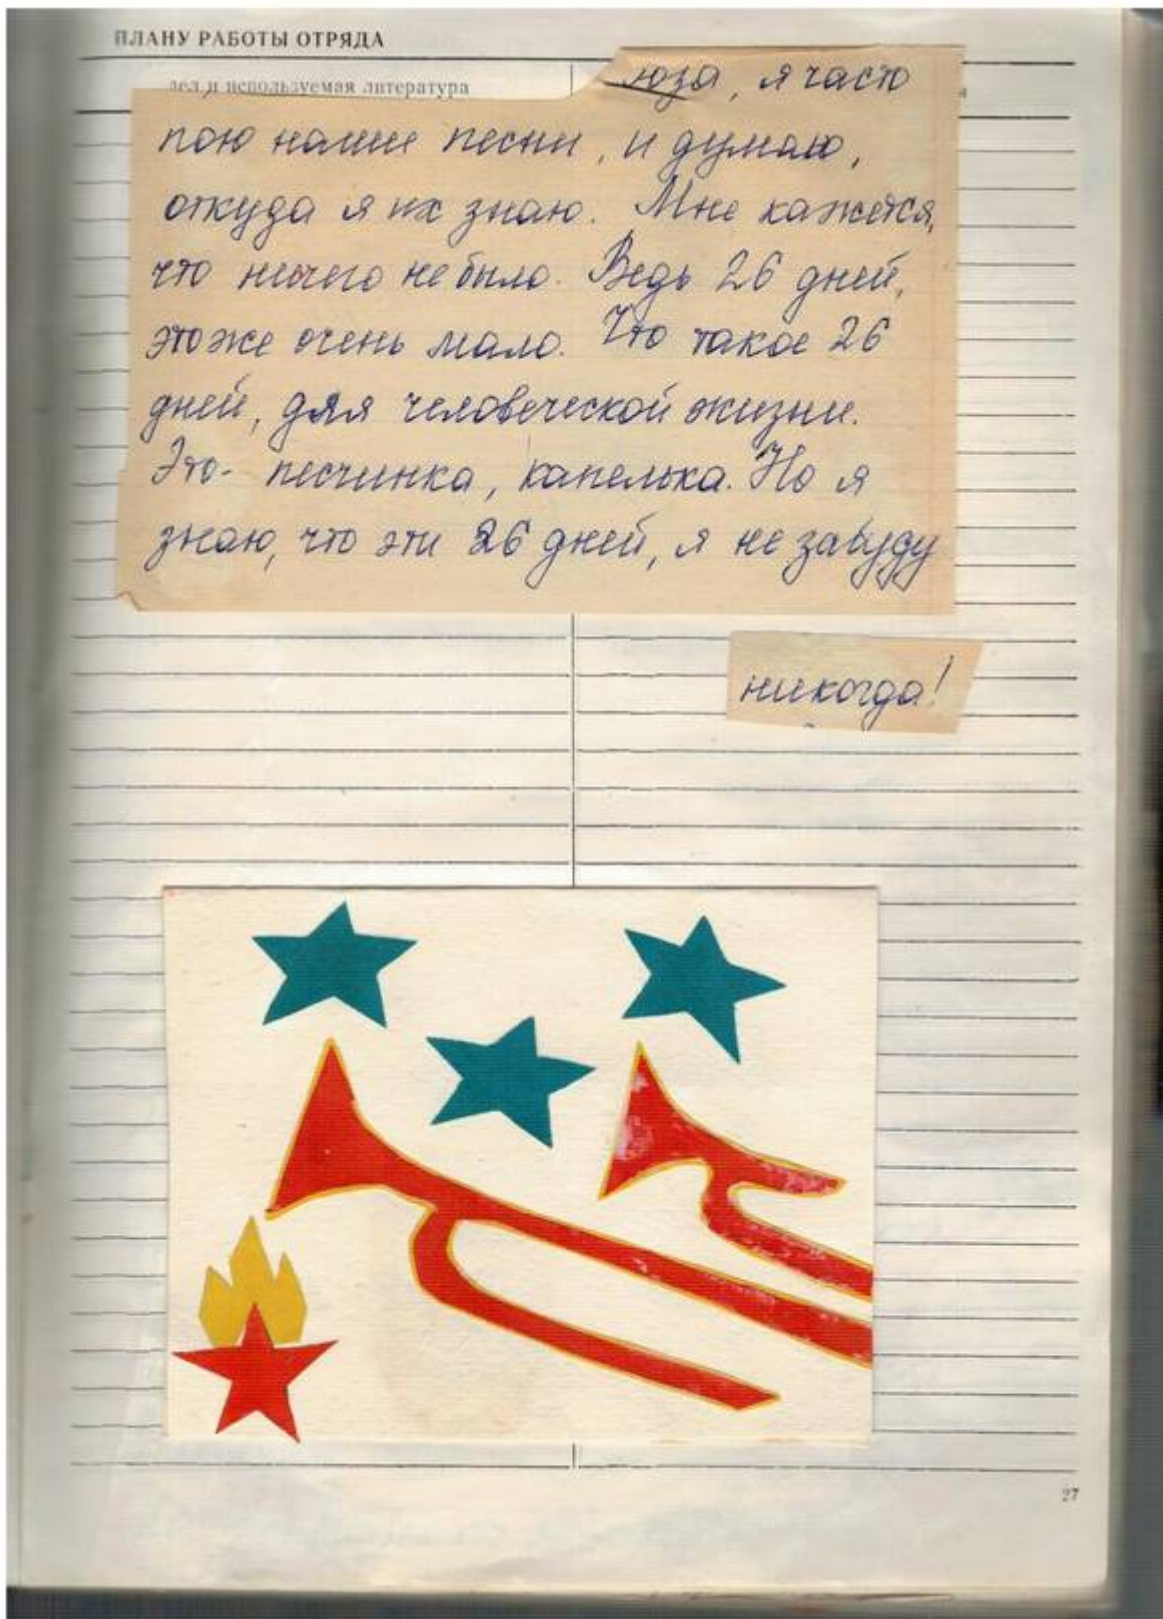 ПЛАНУ РАБОТЫ ОТРЯДА
дел и используемая литература
юза, я часто
пою наши песни, и думаю,
откуда я их знаю. Мне кажется,
что ничего не было. Ведь 26 дней,
это же очень мало. Что такое 26
дней, для человеческой жизни.
Это - песчинка, капелька. Но я
знаю, что эти 26 дней, я не забуду
никогда!
27